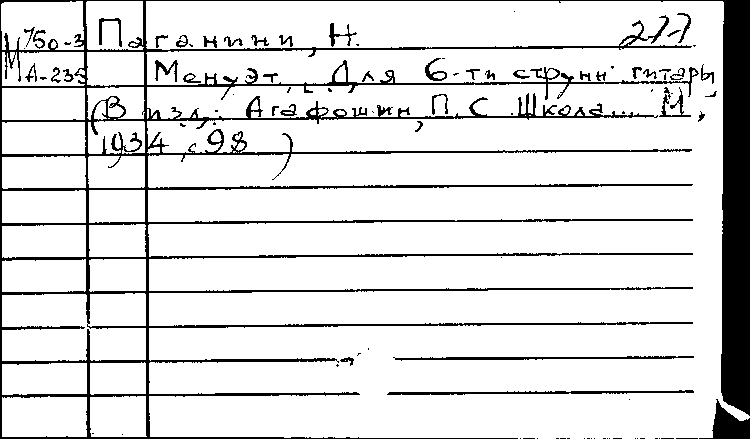 М 750-3 Паганини, Н. 277
А-235 Менуэт. Для 6-ти струнн гитары
(В изд.: Агафошин, П. С Школа... М.,
1934, с. 98)